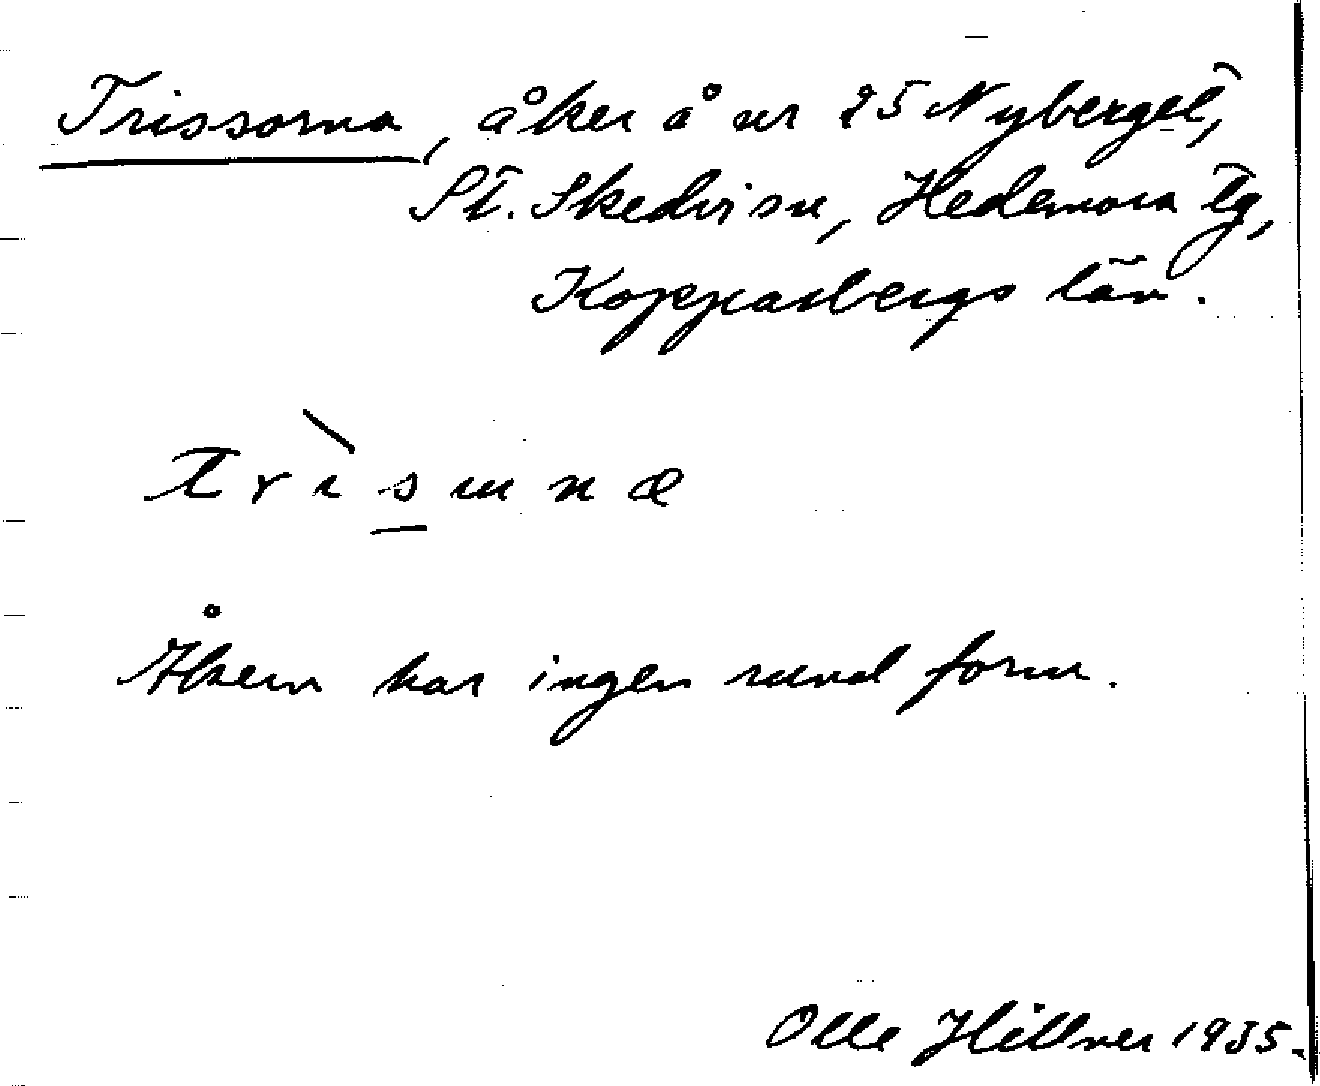 Trissorna, åker å nr 25 Nyberget,
St. Skedvi sn, Hedemora tg,
Kopparbergs län.
trìsmnæ
Åkern har ingen rund form.
Olle Hillner 1935.